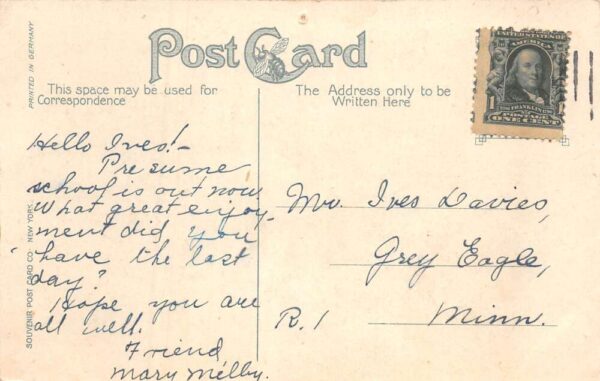 PRINTED IN GERMANY
SOUVENIR POST CARD CO. NEW YORK.
Post Card
This space may be used for
Correspondence
The Address only to be
Written Here
UNITED STATES OF
AMERICA
1
FRANKLIN
POSTAGE
ONE CENT
Hello Ives!-
Presume
school is out now
What great enjoy-
ment did you
have the last
day?
Hope you are
all well.
Friend
Mary Melby.
Mr. Ives Davies,
Grey Eagle,
R. 1 Minn.